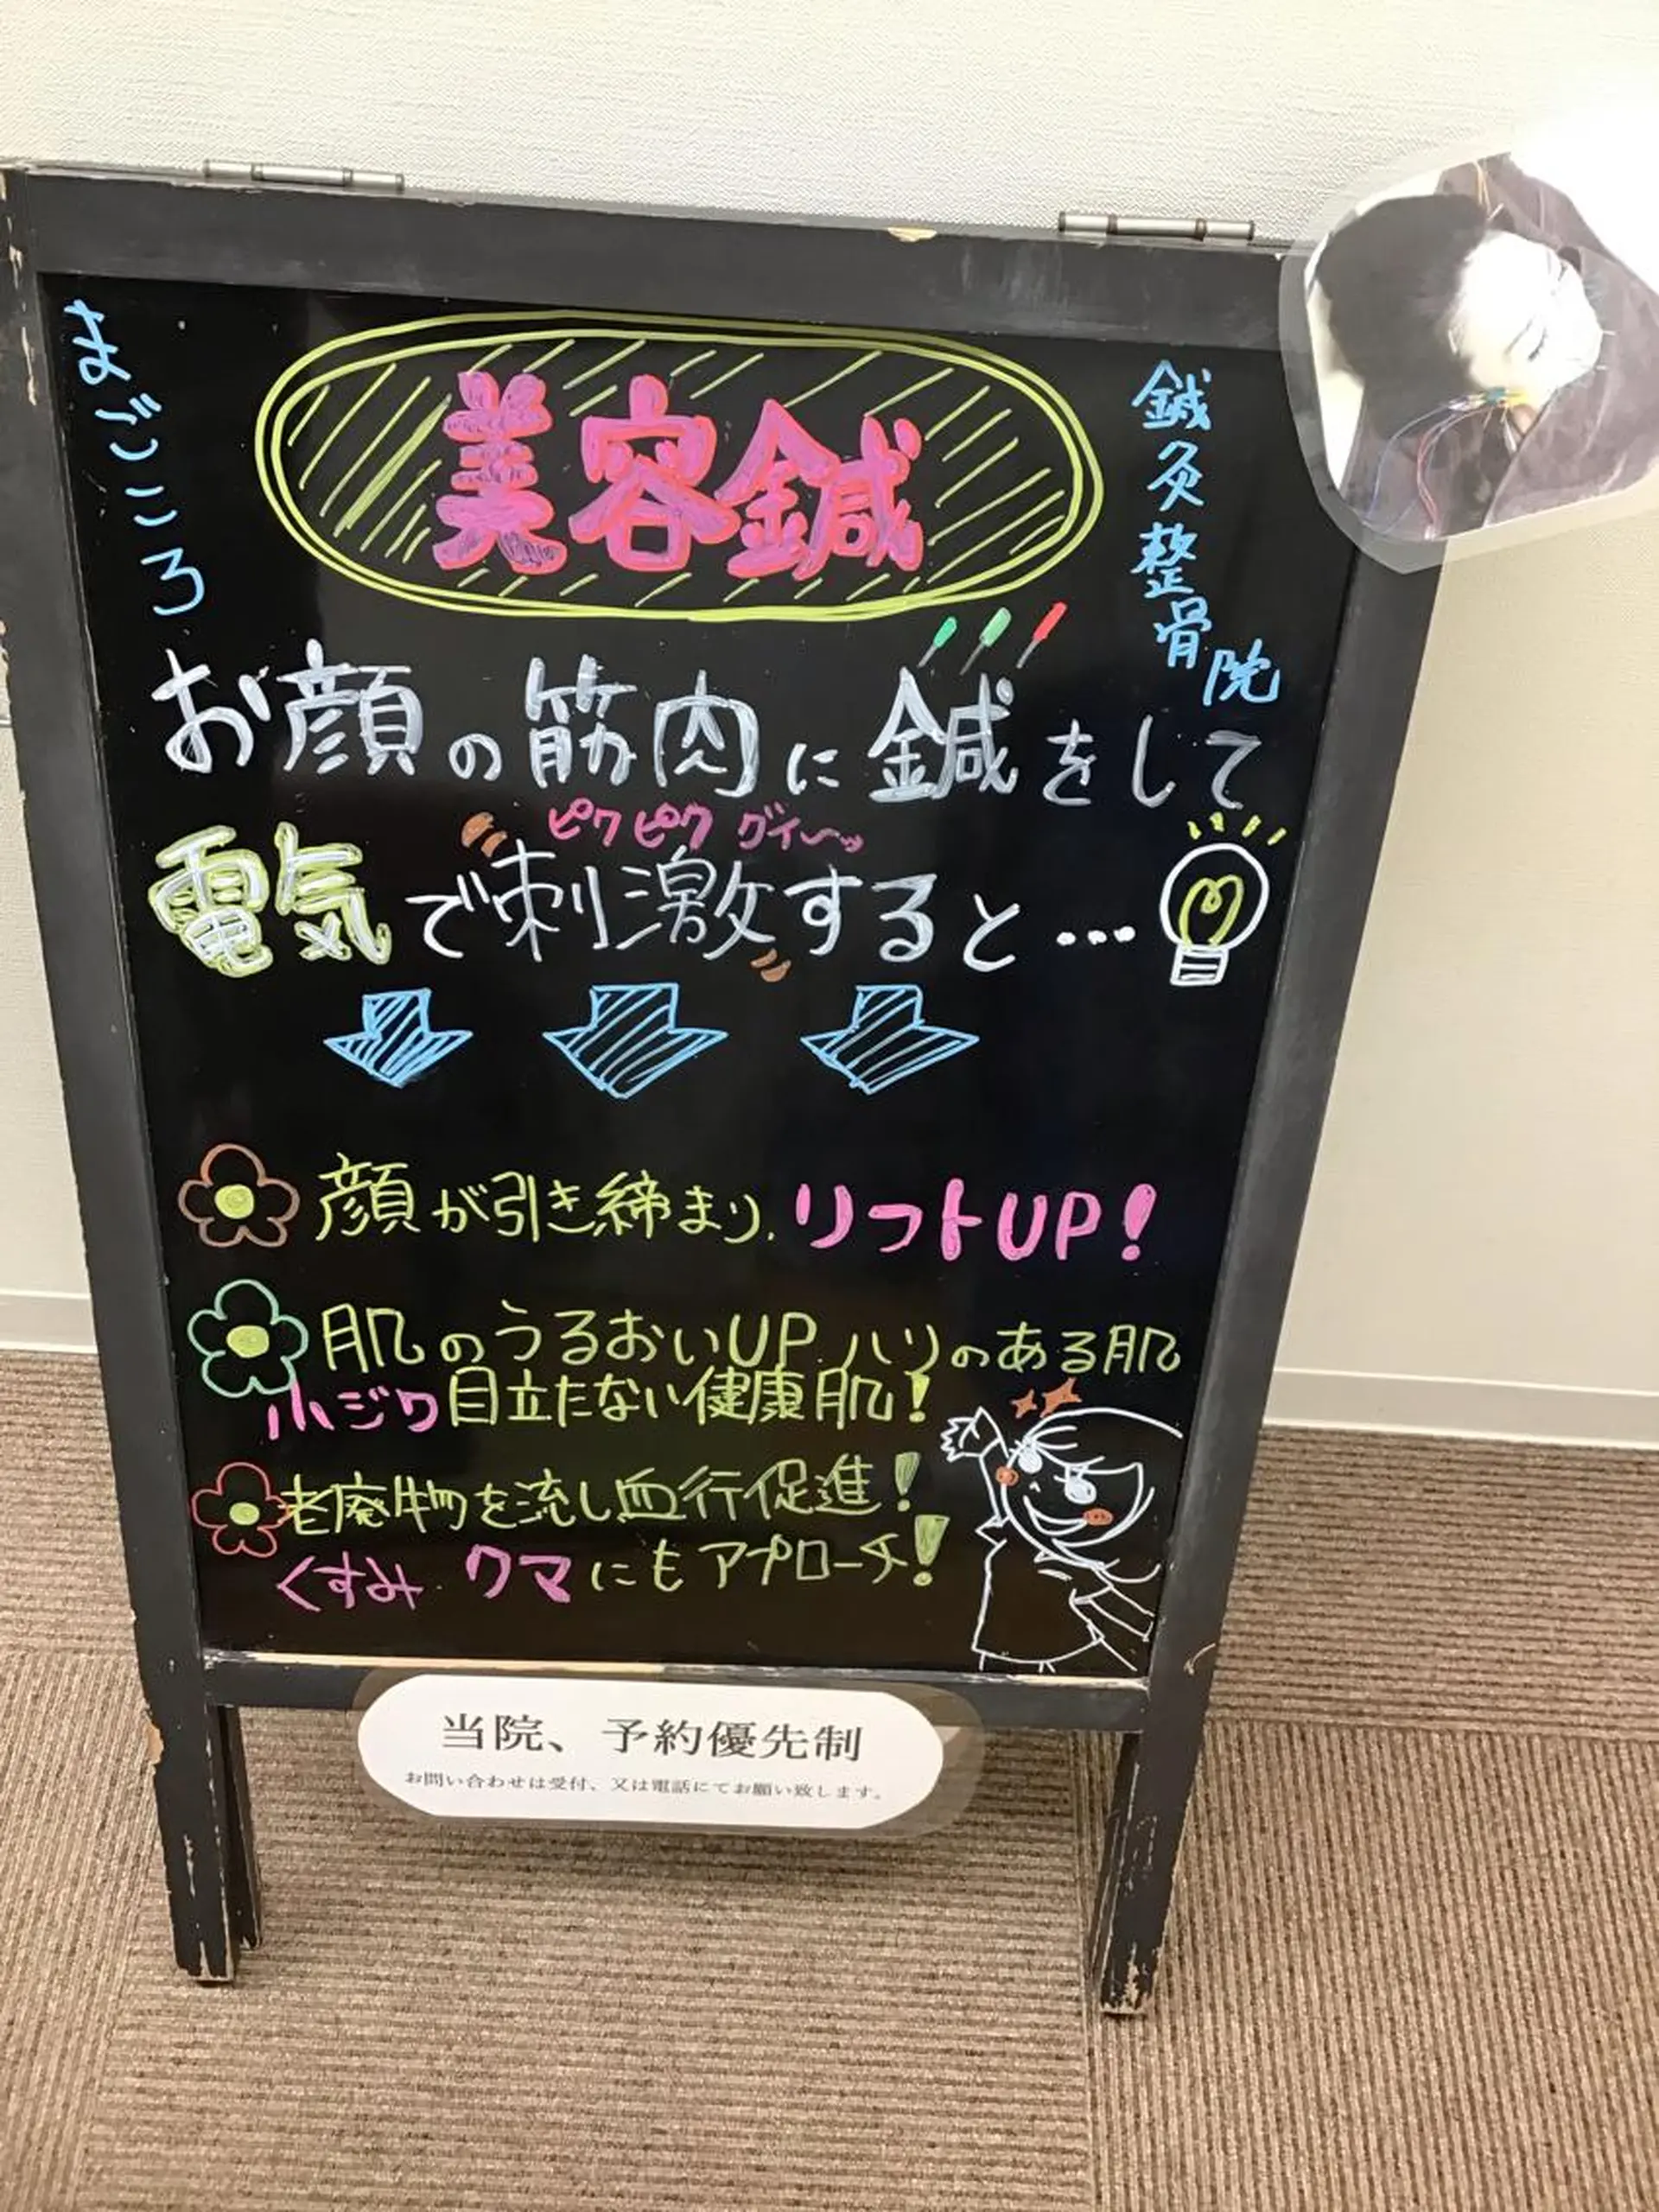 まごころ
鍼灸整骨院
美容鍼
お顔の筋肉に鍼をして
ピクピク グイ〜ッ
電気で刺激すると…
顔が引き締まり、リフトUP!
肌のうるおいUP ハリのある肌
小ジワ目立たない健康肌!
老廃物を流し血行促進!
くすみ・クマにもアプローチ!
当院、予約優先制
お問い合わせは受付、又は電話にてお願い致します。